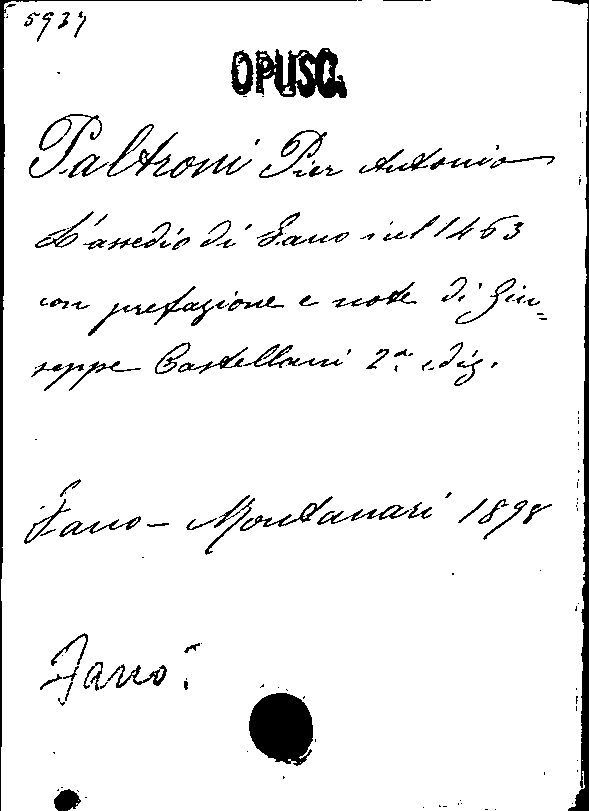 5937
OPUSC.
Paltroni Pier Antonio
L'assedio di Fano nel 1463
con prefazione e note di Giu-
seppe Castellani 2ª ediz.
Fano - Montanari 1898
Fano.